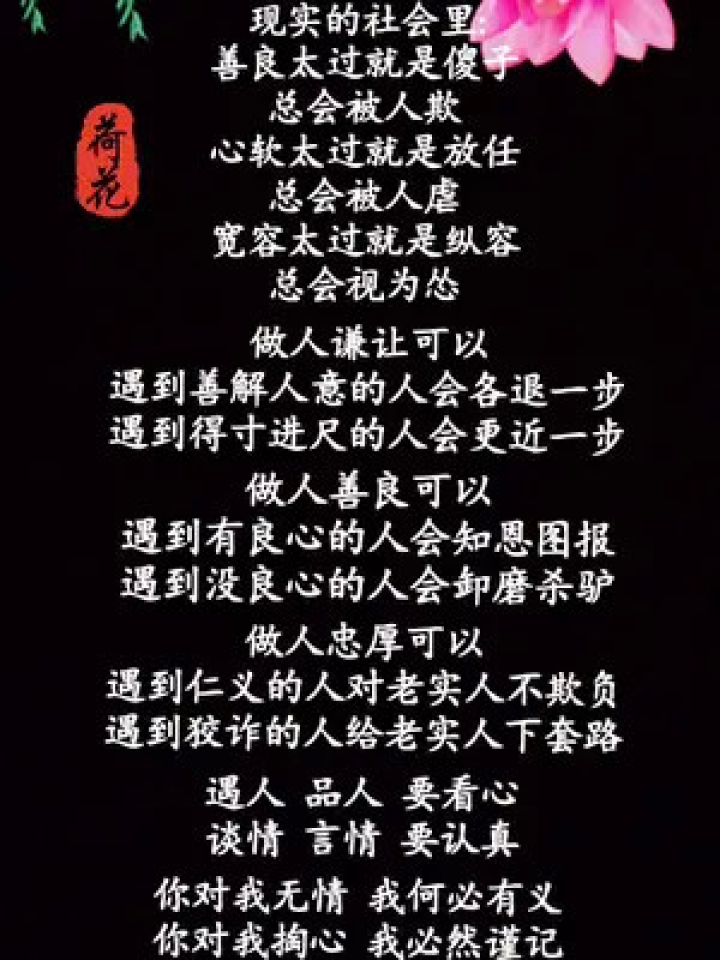 现实的社会里:
善良太过就是傻子
总会被人欺
心软太过就是放任
总会被人虐
宽容太过就是纵容
总会视为怂
荷花
做人谦让可以
遇到善解人意的人会各退一步
遇到得寸进尺的人会更近一步
做人善良可以
遇到有良心的人会知恩图报
遇到没良心的人会卸磨杀驴
做人忠厚可以
遇到仁义的人对老实人不欺负
遇到狡诈的人给老实人下套路
遇人 品人 要看心
谈情 言情 要认真
你对我无情 我何必有义
你对我掏心 我必然谨记